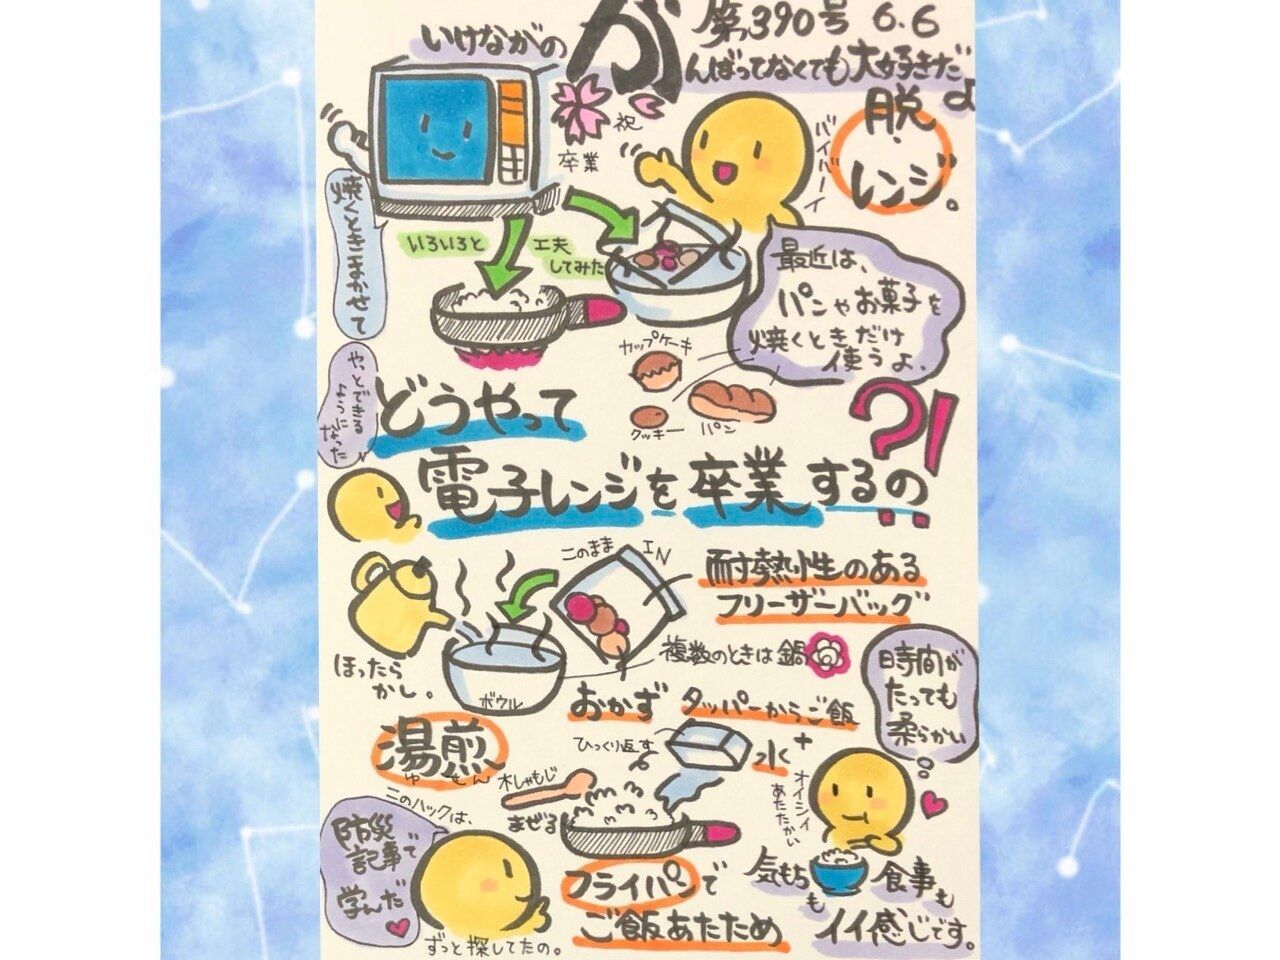 いけなが の
が
第390号 6.6
んばってなくても大好きだよ
脱・
レンジ。
祝
卒業
バイバーイ
焼くときまかせて
いろいろと
工夫
してみた
最近は、
パンやお菓子を
焼くときだけ
使うよ。
カップケーキ
クッキー
パン
やっとできる
ように
なった
どうやって
電子レンジを卒業するの
?!
このまま
IN
耐熱性のある
フリーザーバッグ
複数のときは鍋
ほったら
かし。
ボウル
湯煎
ゆせん
おかず
タッパーからご飯
ひっくり返す
+
水
時間が
たっても
柔らかい
木しゃもじ
まぜる
オイシイ
あたたかい
このハックは、
防災
記事で
学んだ
ずっと探してたの。
フライパンで
ご飯あたため
気もちも
食事も
イイ感じです。